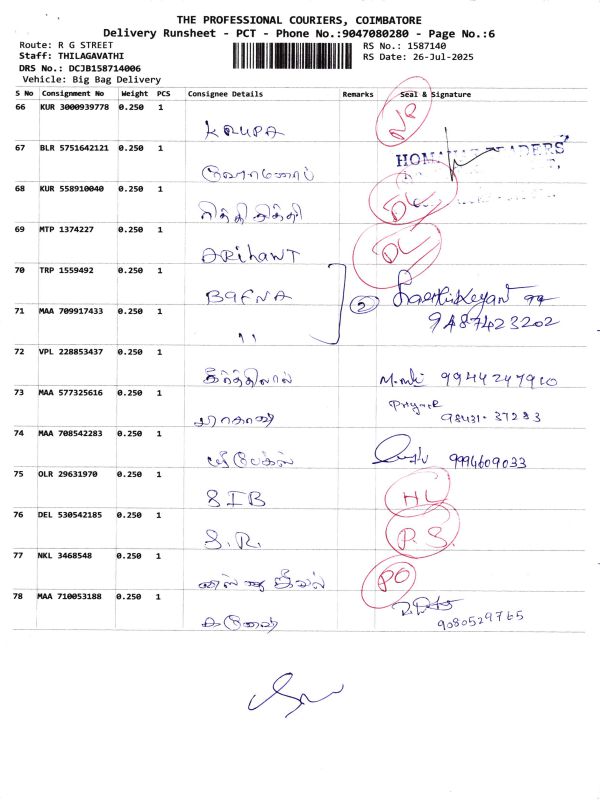 THE PROFESSIONAL COURIERS, COIMBATORE
Delivery Runsheet - PCT - Phone No.:9047080280 - Page No.:6
Route: R G STREET
RS No.: 1587140
Staff: THILAGAVATHI
RS Date: 26-Jul-2025
DRS No.: DCJB158714006
Vehicle: Big Bag Delivery
S No Consignment No Weight PCS Consignee Details Remarks Seal & Signature
66 KUR 3000939778 0.250 1
KRUPA
67 BLR 5751642121 0.250 1
68 KUR 558910040 0.250 1
சித்தி சக்தி DL
69 MTP 1374227 0.250 1 DL
ARihANT
70 TRP 1559492 0.250 1
BAFNA 2 Kaerthikeyan
71 MAA 709917433 0.250 1 9487423202
"
72 VPL 228853437 0.250 1
கீர்த்திலால் 9944247910
73 MAA 577325616 0.250 1
98431-37283
74 MAA 708542283 0.250 1
9994609033
75 OLR 29631970 0.250 1
SIB HL
76 DEL 530542185 0.250 1
S.R. P.S.
77 NKL 3468548 0.250 1
PO
78 MAA 710053188 0.250 1
9080529765